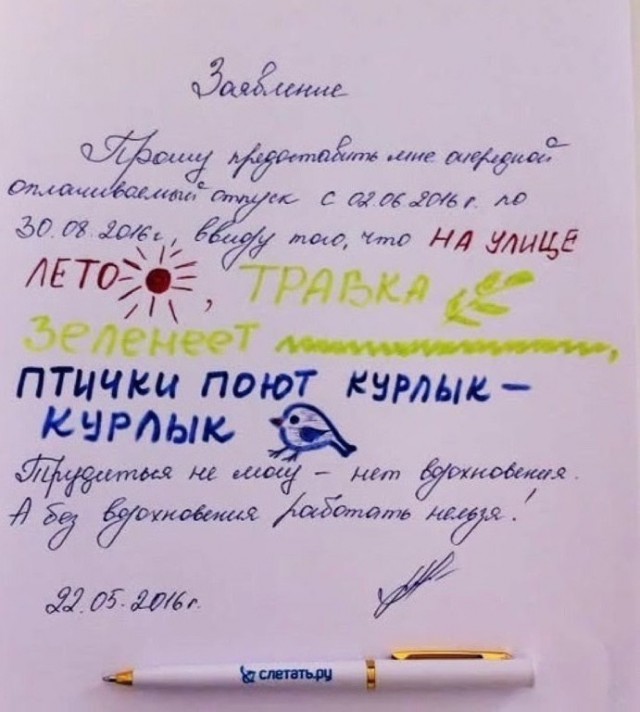 Заявление
Прошу предоставить мне очередной
оплачиваемый отпуск с 02.06.2016 г. по
30.08.2016 г., ввиду того, что НА УЛИЦЕ
ЛЕТО, ТРАВКА
Зеленеет,
ПТИЧКИ ПОЮТ КУРЛЫК –
КУРЛЫК
Трудиться не могу – нет вдохновения.
А без вдохновения работать нельзя!
22.05.2016 г.
слетать.ру